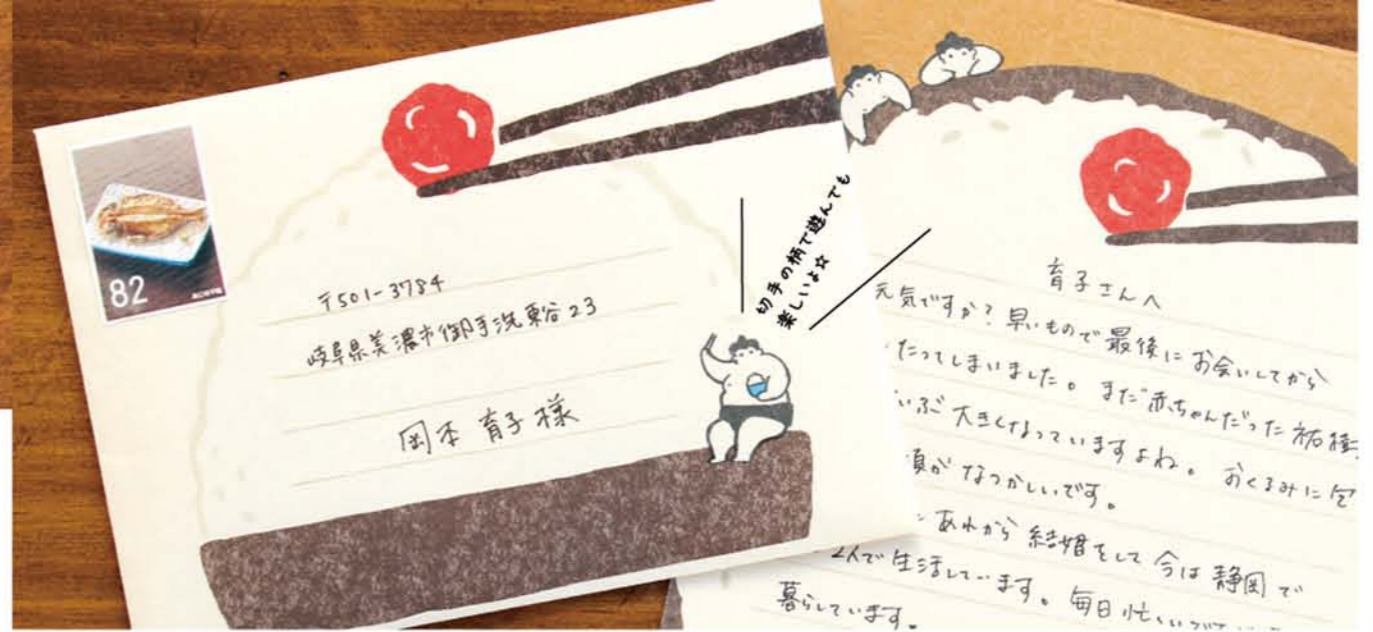 82
〒501-3784
岐阜県美濃市御手洗東谷23
岡本 育子 様
切手の柄で遊んでも
楽しいよ☆
育子さんへ
元気ですか？早いもので最後にお会いしてから
たってしまいました。まだ赤ちゃんだった祐樹
いぶ大きくなっていますよね。おくるみに包
頃がなつかしいです。
あれから結婚をして今は静岡で
2人で生活しています。毎日忙しい
暮らしています。